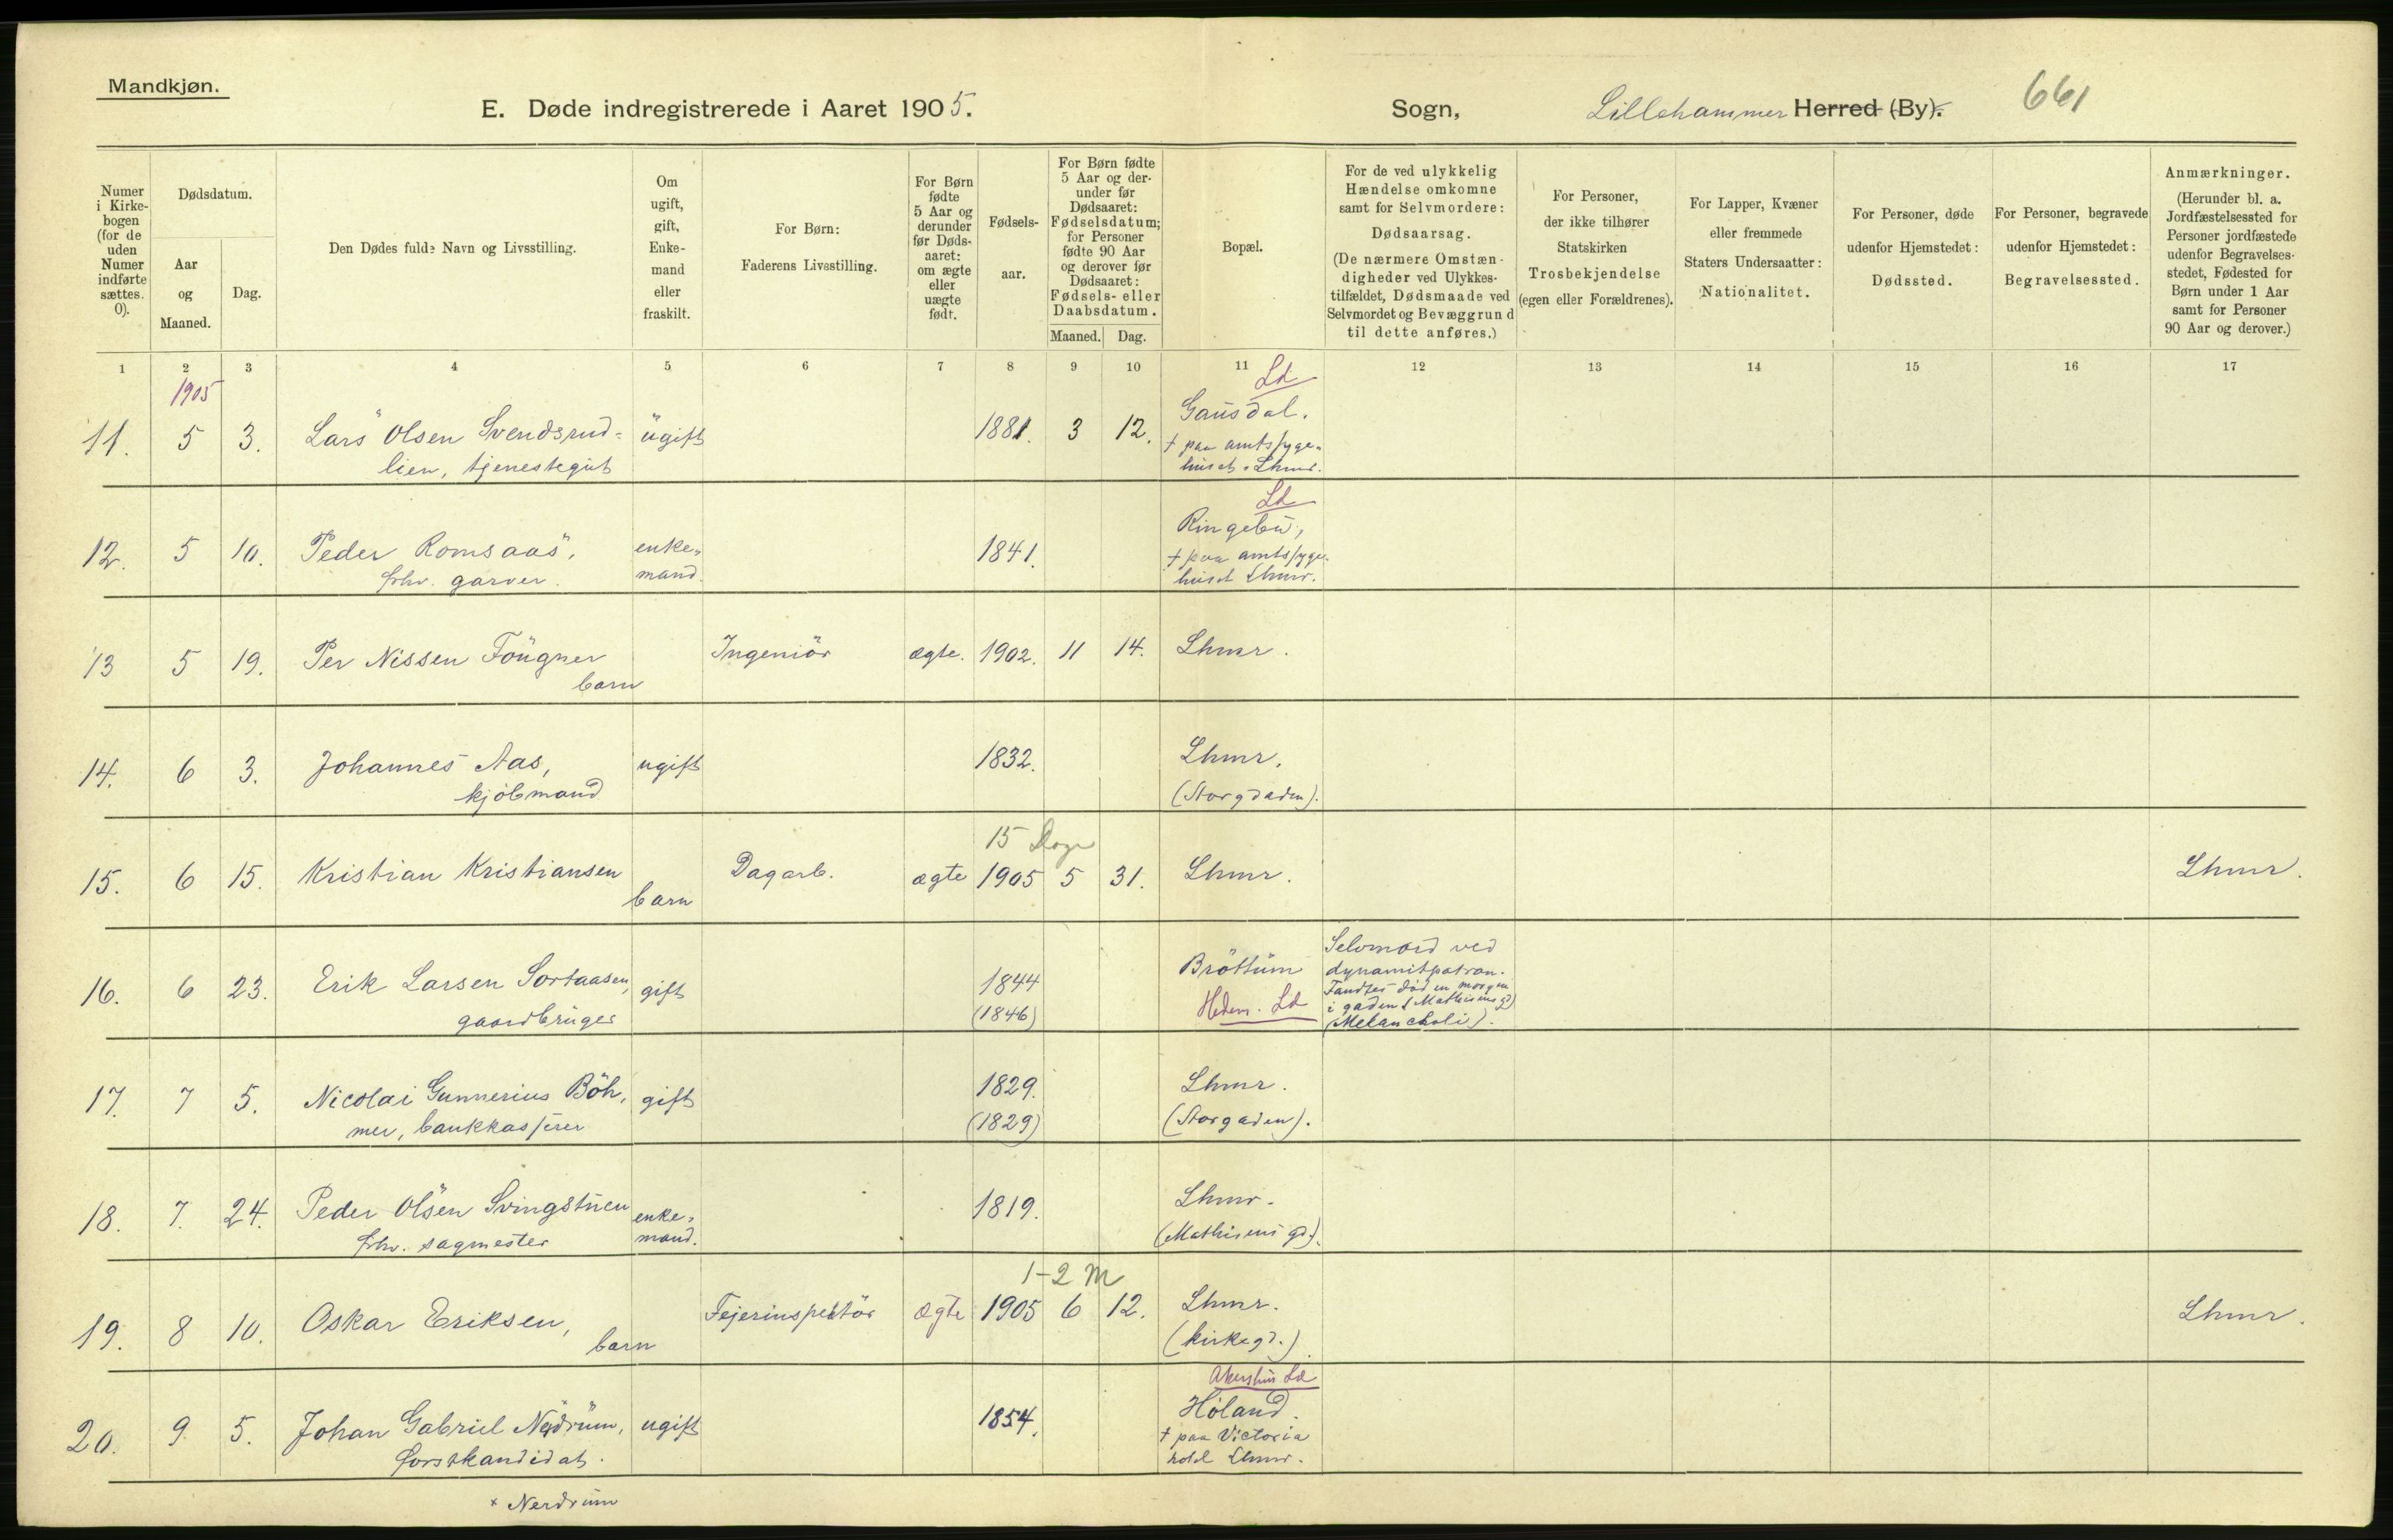 Mandkjøn.
E. Døde indregistrerede i Aaret 1905. Sogn, Lillehammer Herred (By). 661
Numer i Kirkebogen (for de uden Numer indførte sættes. 0).
Dødsdatum.
Aar og Maaned.
Dag.
Den Dødes fulde Navn og Livsstilling.
Om ugift, gift, Enkemand eller fraskilt.
For Børn: Faderens Livsstilling.
For Børn fødte 5 Aar og derunder før Dødsaaret: om ægte eller uægte født.
Fødselsaar.
For Børn fødte 5 Aar og derunder før Dødsaaret: Fødselsdatum; for Personer fødte 90 Aar og derover før Dødsaaret: Fødsels- eller Daabsdatum.
Maaned. Dag.
Bopæl.
For de ved ulykkelig Hændelse omkomne samt for Selvmordere: Dødsaarsag. (De nærmere Omstændigheder ved Ulykkestilfældet, Dødsmaade ved Selvmordet og Bevæggrund til dette anføres.)
For Personer, der ikke tilhører Statskirken Trosbekjendelse (egen eller Forældrenes).
For Lapper, Kvæner eller fremmede Staters Undersaatter: Nationalitet.
For Personer, døde udenfor Hjemstedet: Dødssted.
For Personer, begravede udenfor Hjemstedet: Begravelsessted.
Anmærkninger. (Herunder bl. a. Jordfæstelsessted for Personer jordfæstede udenfor Begravelsesstedet, Fødested for Børn under 1 Aar samt for Personer 90 Aar og derover.)
1 2 3 4 5 6 7 8 9 10 11 12 13 14 15 16 17
1905 Ld
11. 5 3. Lars Olsen Svendsrud= ugift 1881. 3 12. Gausdal.
lien, tjenestegut † paa amtssyge=
huset. Lhmr.
Ld
12. 5 10. Peder Romsaas, enke= 1841. Ringebu,
fhv. garver. mand. † paa amtssyge=
huset Lhmr.
13 5 19. Per Nissen Föugner Ingeniör ægte. 1902. 11 14. Lhmr.
barn
14. 6 3. Johannes Aas, ugift 1832. Lhmr.
kjöbmand (Storgdaden).
15 Dage
15. 6 15. Kristian Kristiansen Dagarb. ægte 1905 5 31. Lhmr. Lhmr.
barn
16. 6 23. Erik Larsen Sortaasen, gift 1844 Bröttum Selvmord ved
gaardbruger (1846) Hedem. Ld dynamitpatron.
Fandtes död en morgen
i gaden (Mathisens gd)
(Melancholi).
17. 7 5. Nicolai Gunnerius Böh, gift 1829. Lhmr.
mer, bankkasserer (1829) (Storgaden).
18. 7. 24. Peder Olsen Svingstuen enke= 1819. Lhmr.
fhv. sagmester mand. (Mathisens gd.).
1-2 M
19. 8 10. Oskar Eriksen, Fejerinspektör ægte 1905 6 12. Lhmr. Lhmr.
barn (kirkegd.)
Akershus Ld
20. 9 5. Johan Gabriel Nerdrum, ugift 1854. Höland.
forstkandidat. † paa Victoria
hotel Lhmr.
× Nerdrum